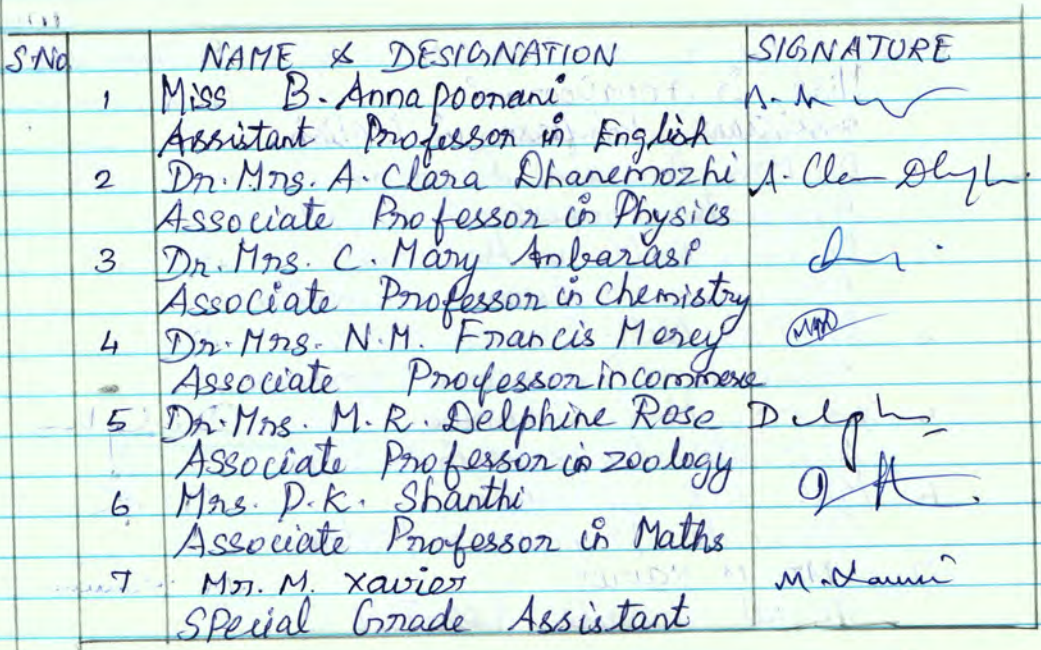 S.No NAME & DESIGNATION SIGNATURE
1 Miss B. Annapoorani
Assistant Professor in English
2 Dr. Mrs. A. Clara Dhanemozhi
Associate Professor in Physics
3 Dr. Mrs. C. Mary Anbarasi
Associate Professor in Chemistry
4 Dr. Mrs. N.M. Francis Mercy
Associate Professor in commerce
5 Dr. Mrs. M.R. Delphine Rose
Associate Professor in zoology
6 Mrs. P.K. Shanthi
Associate Professor in Maths
7 Mr. M. Xavier
Special Grade Assistant